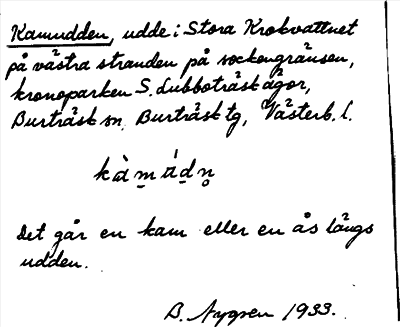 Kamudden, udde i Stora Krokvattnet
på västra stranden på sockengränsen,
kronoparken S. Lubboträsk ägor,
Burträsk sn. Burträsk tg, Västerb. l.
Det går en kam eller en ås längs
udden.
B. Nygren 1933.